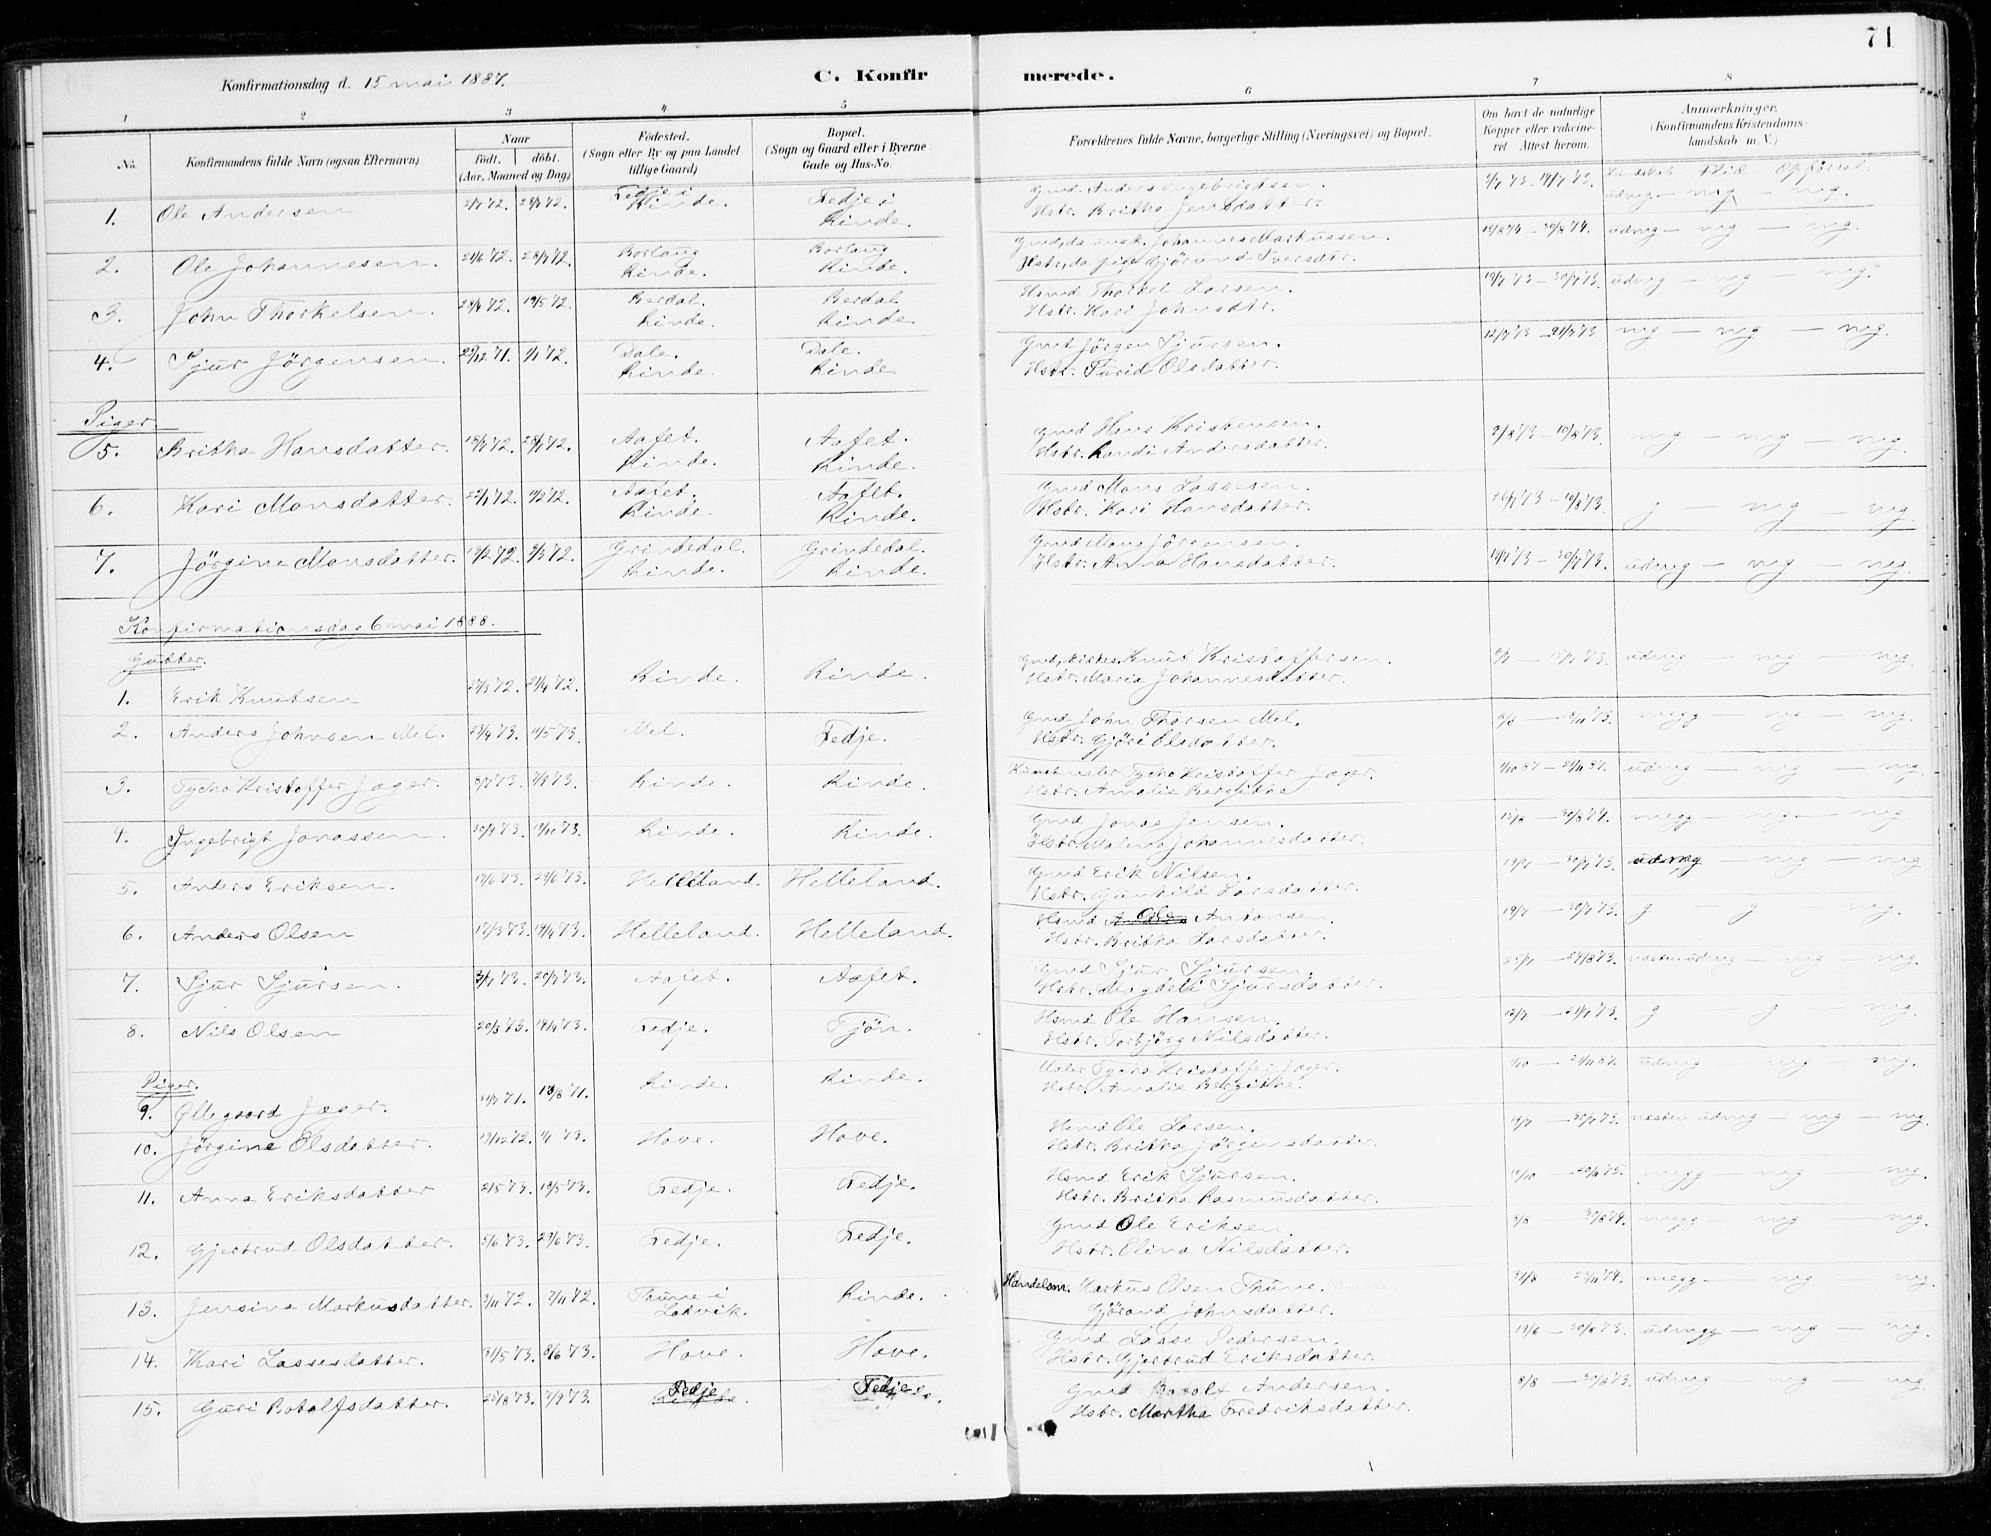 71
Konfirmationsdag d. 15 mai 1887.
C. Konfirmerede.
1 2 3 4 5 6 7 8
No.
Konfirmandens fulde Navn (ogsaa Efternavn)
Naar
født. døbt.
(Aar, Maaned og Dag)
Fødested.
(Sogn eller By og paa Landet
tillige Gaard)
Bopæl.
(Sogn og Gaard eller i Byerne
Gade og Hus-No.
Forældrenes fulde Navne, borgerlige Stilling (Næringsvei) og Bopæl.
Om havt de naturlige
Kopper eller vakcine-
ret Attest herom.
Anmærkninger.
(Konfirmandens Kristendoms-
kundskab m. V.)
Kundskab Flid Opførsel
1. Ole Andersen Fedje i Rinde. Fedje i Rinde. Gmd Anders Ingebrigtsen. Hstr. Britha Jensdatter. udmg - mg - mg.
2. Ole Johannesen. 28/7 72. Borlaug Rinde. Borlaug Rinde. Johannes Markussen. udmg - mg - mg
3. John Thorkelsen. 19/5 72. Berdal. Rinde. Berdal. Rinde. Hsmd Thorkel Larsen. Hstr. Kari Johnsdtr. 30/7 73. udmg - mg - mg.
4. Sjur Jörgensen. 1/1 72. Dale. Rinde. Dale. Rinde. Gmd Jörgen Sjursen. Hstr. Turid Olsdatter. 12/7 73 - 21/7 73. mg - mg - mg.
Piger.
5. Britha Hansdatter. Aafet. Rinde. Aafet. Rinde. Gmd Hans Kristensen. Hstr. Randi Andersdatter. 2/8 73 - 10/8 73. mg - mg - mg.
6. Kari Monsdatter. Aafet. Rinde. Aafet. Rinde. Gmd Mons Lassesen. Hstr. Kari Hansdatter. 26/7 73 - 10/8 73. g - mg - mg
7. Jörgine Monsdatter. Grindedal. Rinde. Grindedal. Rinde. Gmd Mons Jörgensen. Hstr. Anna Hansdatter. 30/7 73. udmg - mg - mg.
Konfirmationsdag 6 mai 1888.
Gutter.
1. Erik Knutsen 27/3 72. 21/4 72. Rinde. Rinde. Knut Kristoffersen. Hstr. Maria Johannesdatter. udmg - mg - mg
2. Anders Johnsen Mel. 23/4 73. 11/5 73. Mel. Fedje. Gmd John Thorsen Mel. Hstr. Gjöri Olsdatter. megg - mg - mg.
3. Tycho Kristoffer Jæger. Rinde. Rinde. Kunstmaler Tycho Kristoffer Jæger. Hstr. Amalie Bergithe udmg - mg - mg.
4. Ingebrigt Jonassen. 20/9 73. 19/10 73. Rinde. Rinde. Gmd Jonas Jensen. Hstr. Malena Johannesdatter. 15/8 - 30/8 74. megg - mg - mg.
5. Anders Eriksen. 29/6 73. Helleland. Helleland. Gmd Erik Nilsen. Hstr. Gunhild Larsdatter. 30/7 73. udmg - mg - mg
6. Anders Olsen 17/3 73. 14/4 73. Helleland. Helleland. Hsmd Ole Antonsen. Hstr. Britha Larsdatter. 30/7 73. g - g - mg.
7. Sjur Sjursen. 3/7 73. 20/7 73. Aafet. Aafet. Gmd Sjur Sjursen. Hstr. Magdeli Sjursdatter. næsten udmg - mg - mg.
8. Nils Olsen 20/3 73. 14/4 73. Fedje. Tjön. Hsmd Ole Hansen. Hstr. Torbjörg Nilsdatter. 12/7 - 21/7 73. g - g - mg
Piger.
9. Ollegaard Jæger. 13/8 71. Rinde. Rinde. Maler Tycho Kristoffer Jæger. Hstr. Amalie Bergithe. udmg - mg - mg.
10. Jörgine Olsdatter. 19/12 72. 1/1 73. Hove. Hove. Hsmd Ole Larsen. Hstr. Britha Jörgensdatter. 30/7 73. næsten udmg - mg - mg.
11. Anna Eriksdatter 2/5 73. 18/5 73. Fedje. Fedje. Hsmd Erik Sjursen. Hstr. Britha Rasmusdatter. megg - mg - mg.
12. Gjertrud Olsdatter. 5/6 73. 29/6 73. Fedje. Fedje. Gmd Ole Eriksen. Hstr. Olina Nilsdatter. megg - mg - mg.
13. Jensine Markusdatter. 3/11 72. Thune i Ladvik. Rinde. Handelsm. Markus Olsen Thune. Gjörand Johnsdatter. 31/8 - 23/11 74. megg - mg - mg
14. Kari Lassesdatter. 31/5 73. 8/6 73. Hove. Hove. Gmd Lasse Pedersen. Hstr. Gjertrud Eriksdatter. udmgg - mg - mg.
15. Guri Botolfsdatter. 25/8 73. 7/9 73. Fedje Fedje Gmd Botolf Andersen. Hstr. Martha Fredriksdatter. udmg - mg - mg.